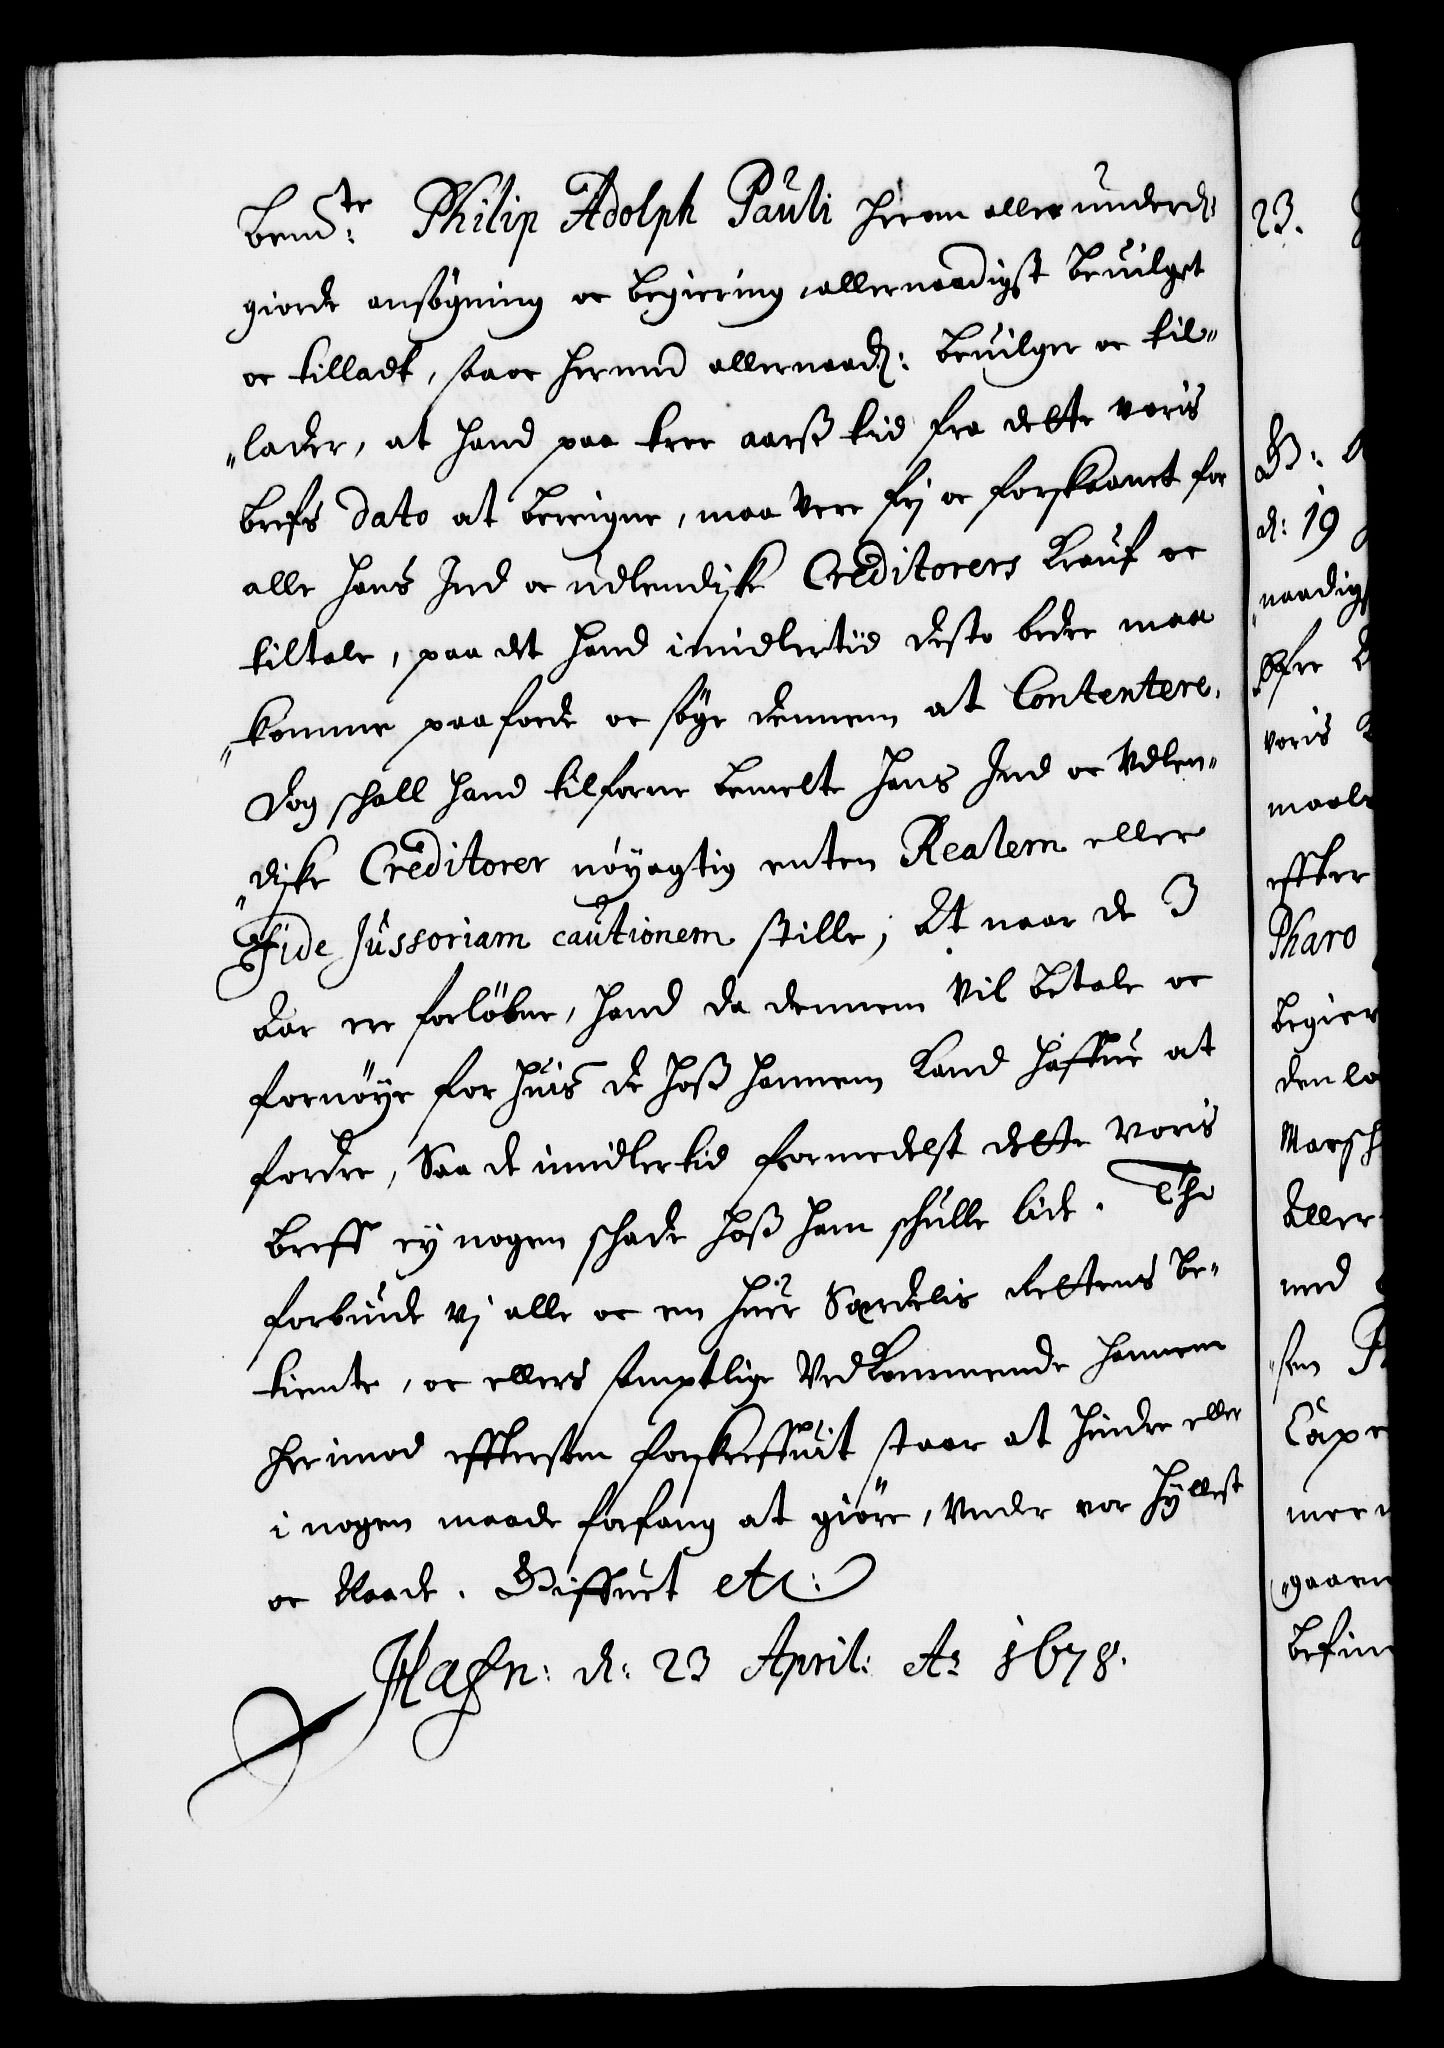 bemte: Philip Adolph Pauli herom aller underd:
giorde ansögning oc begiering, allernaadigst bevilget
oc tilladt, saa oc hermed allernaad: bevilger oc til„
„lader, at hand paa trei aarß tid fra dette voris
brefs dato at bereigne, maa vere frj oc forskaanet for
alle hans Ind oc udlendiske Creditorers Krauf oc
tiltale, paa det hand imidlertid desto bedre maa
„komme paafode oc söge dennem at Contentere,
Dog schall hand tilforne bemelte hans Ind oc Vdlen„
„diske Creditorer nöyagtig enten Realem eller
Fide Jussoriam cautionem stille; At naar de 3
Aar ere forlöbne, hand da dennem vil betale oc
fornöye for huis de hoß hannem Kand haffue at
fordre, Saa de imidlertid formedelst dette voris
breff ey nogen schade hoß ham schulle lide. Thi
forbiude vj alle oc en huer Særdelis Rettens be„
tiente, oc ellers samptlige Vedkommende hannem
herimod effterson forskreffuit staar at hindre eller
i nogen maade forfang at giöre, Vnder vor hyllest
oc Naade. Giffuet etc:
Hafn: d: 23 April: Ao 1678.
23.
G: A
d: 19
„naadigs
voris
maale
effter
Pharo
begier
den lo
Marsch
Aller
med
„sen
Cape
mer
„gaarn
befin